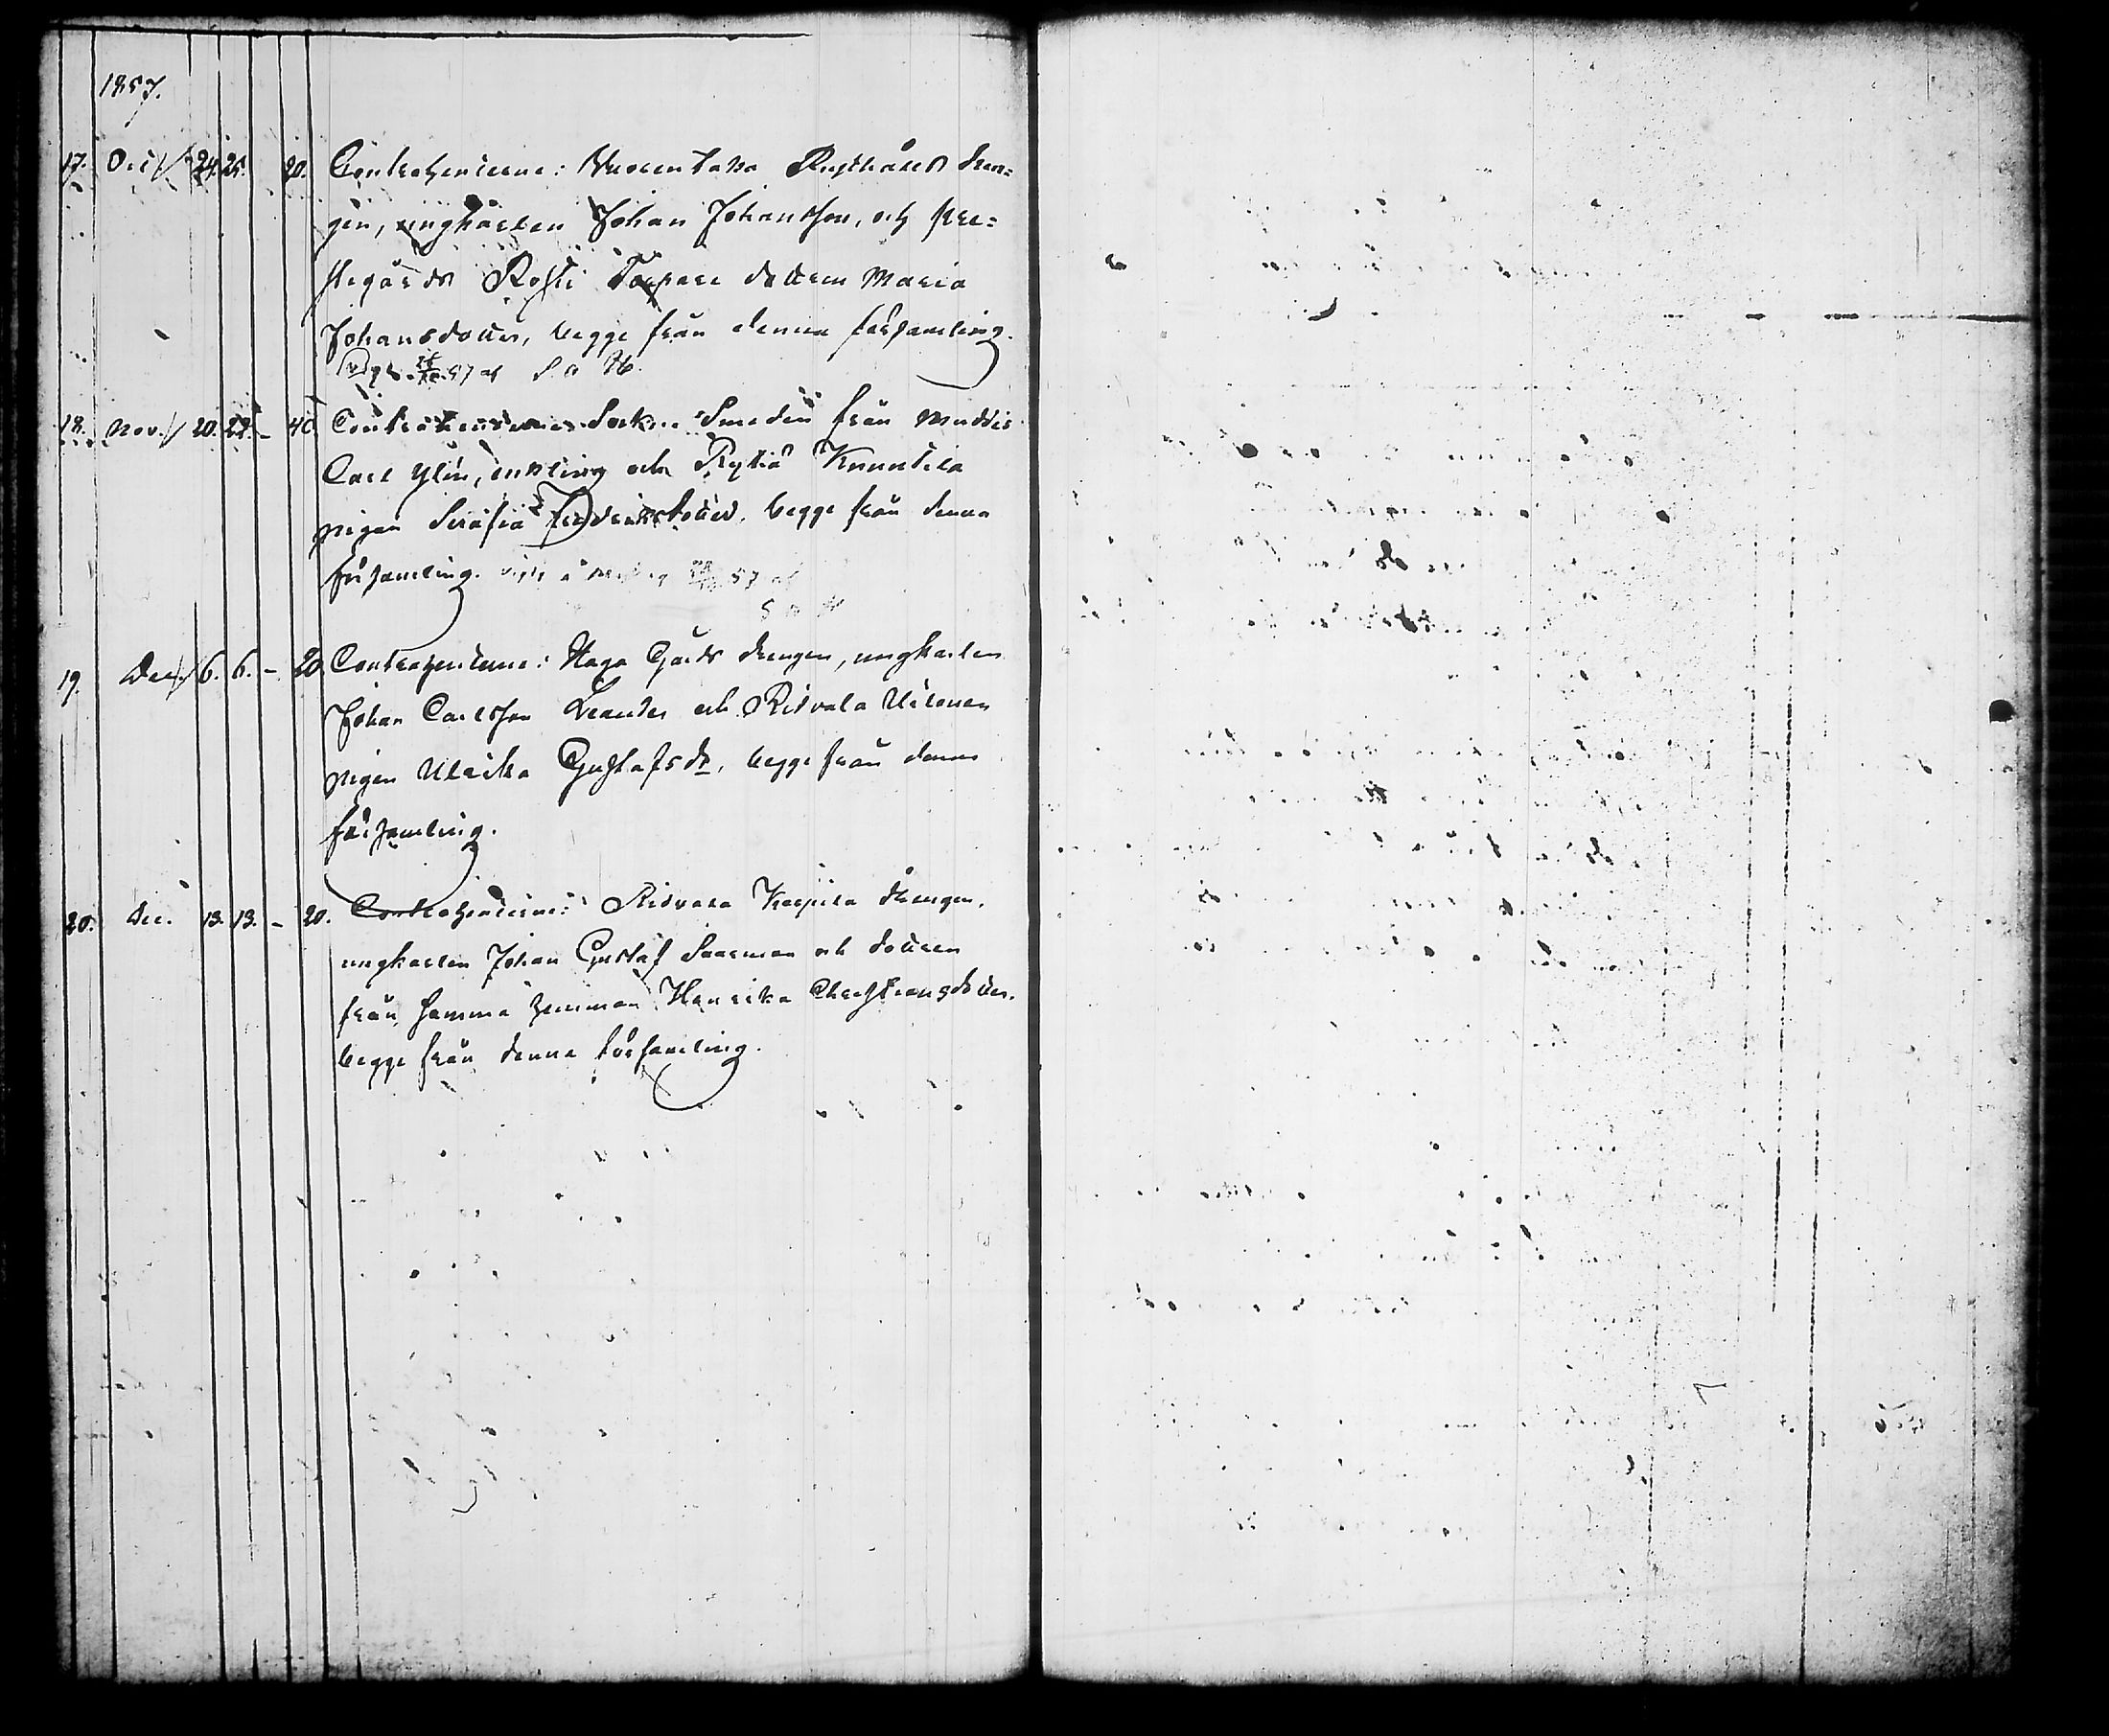 1857.
17. Oct. 24. 25. 20. Contrahenterne: Vuorentaka Rusthålls drän=
gen, ungkarlen Johan Johansson, och pre=
stegårds Torpare dottren Maria
Johansdotter, begge från denna församling.
Vigde 57 af S. a
18. Nov. 20. 29. - 40 Contrahenterne: Sockne Smeden från
Carl Ylén, enkling och Pyttiö Knuutila
pigan Serafia dotter, begge från denna
församling. 57 af
19. Dec. 6. 6. - 20 Contrahenterne: Haga Gårds drengen, ungkarlen
Johan Carlsson Leander och Ridvala Uitonen
pigan Ulrika Gustafsdr, begge från denna
församling.
20. Dec. 13. 13. - 20. Contrahenterne: Ridvala Karpila drengen,
ungkarlen Johan Gustaf Saarman och dottren
från samma hemman Henrika Christiansdotter,
begge från denna församling.